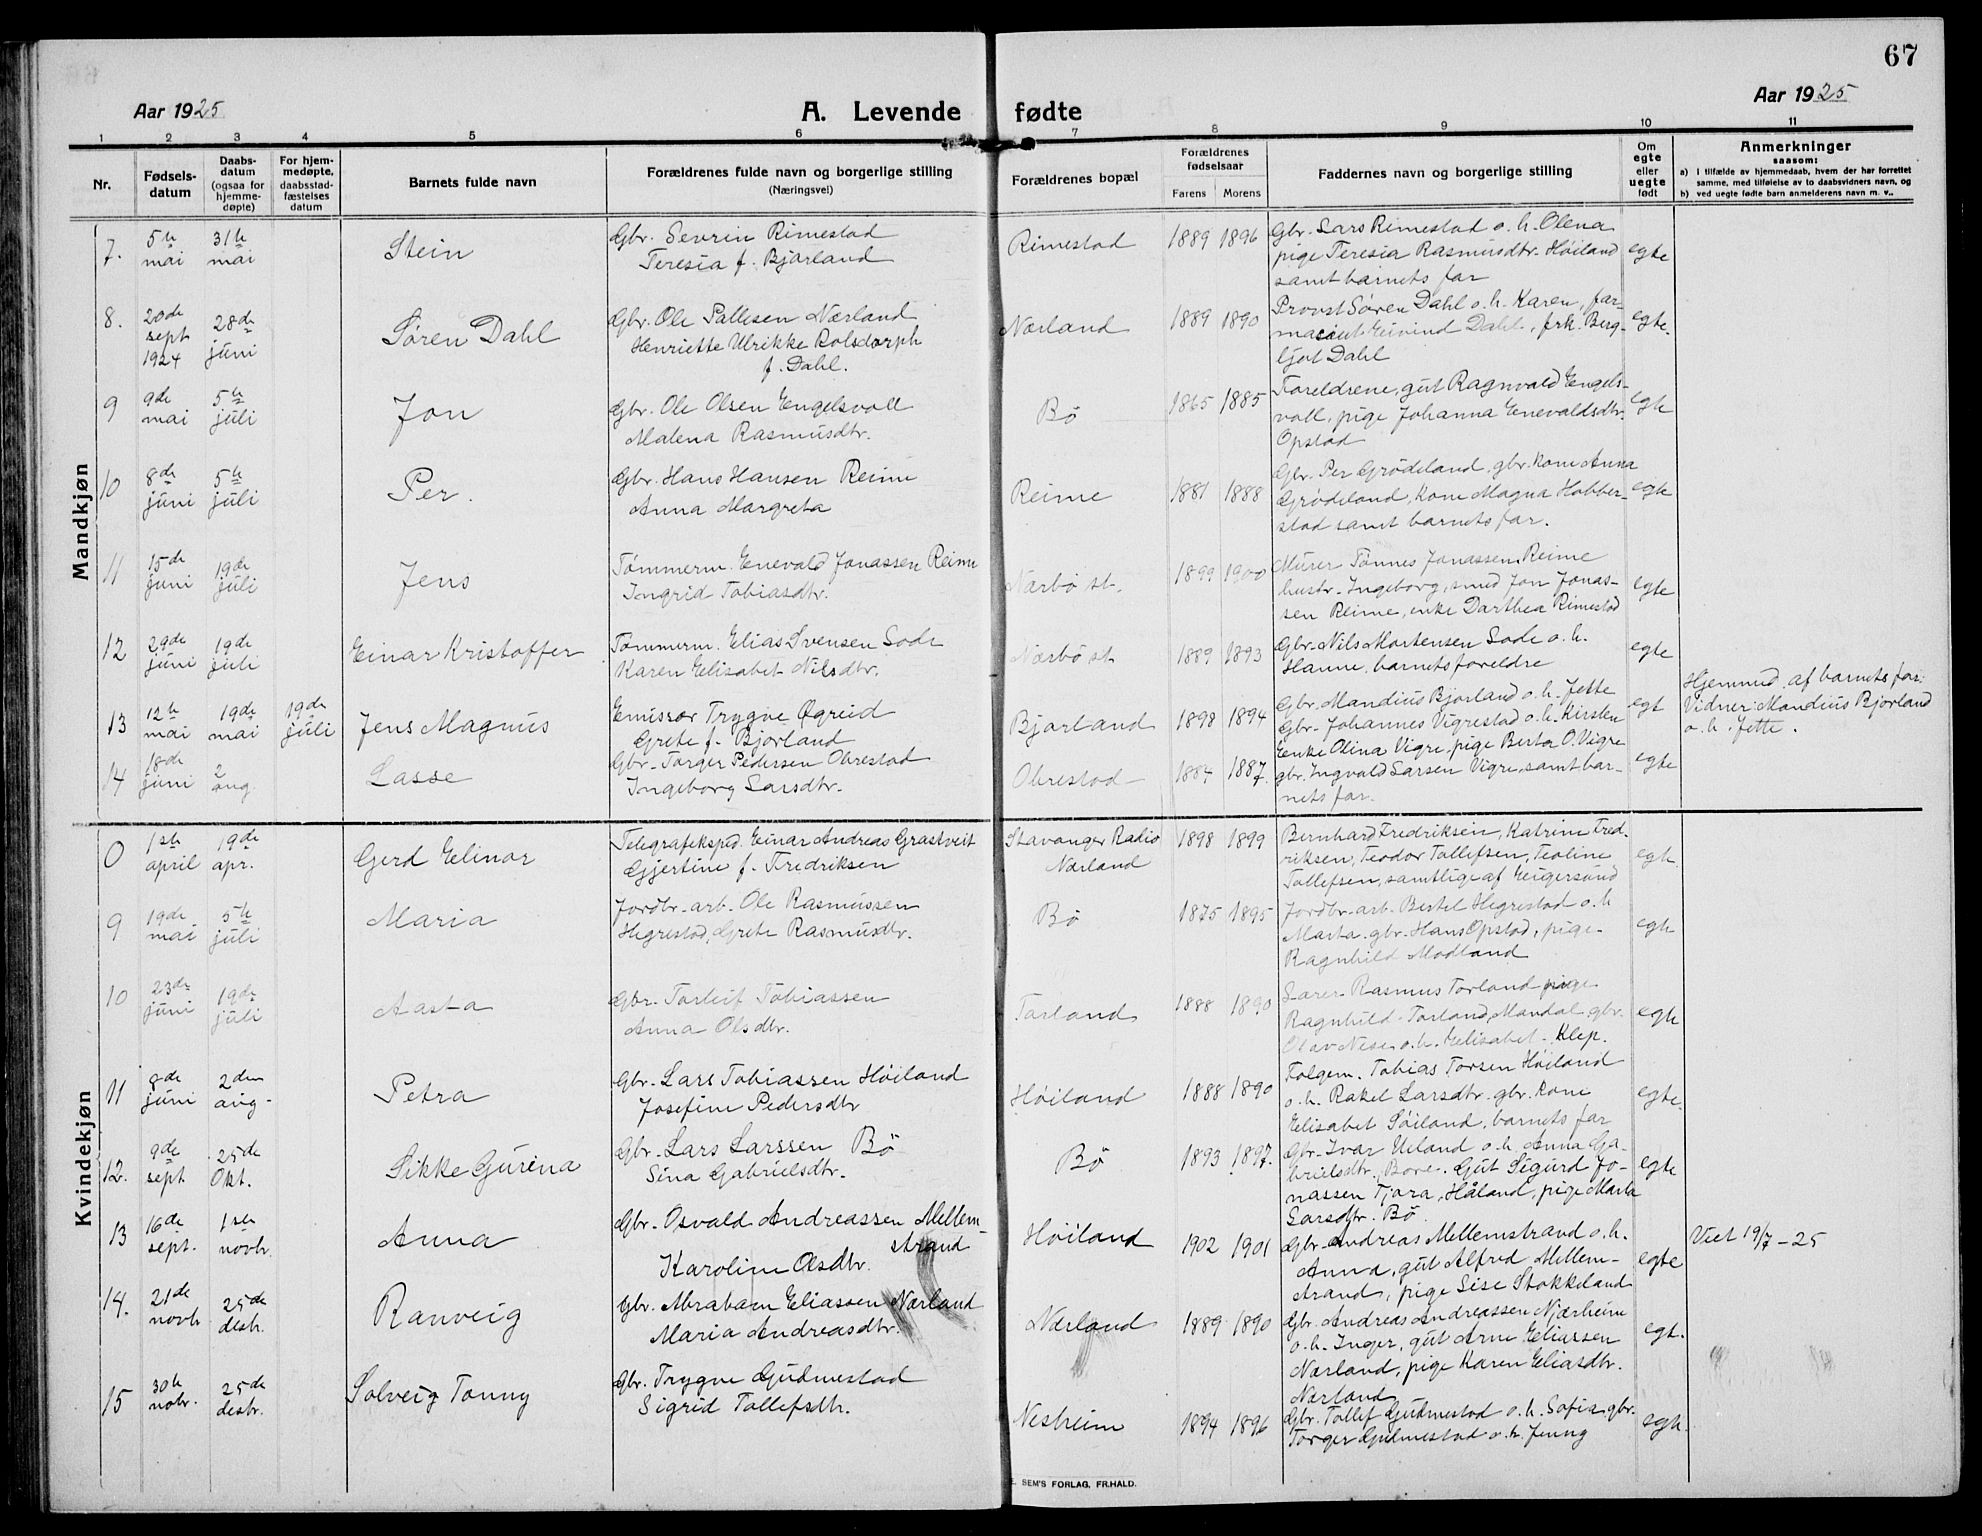 67
Aar 1925
A. Levende fødte
Aar 1925
1 2 3 4 5 6 7 8 9 10 11
Nr.
Fødsels-
datum
Daabs-
datum
(ogsaa for
hjemme-
døpte)
For hjem-
medøpte,
daabsstad-
fæstelses
datum
Barnets fulde navn
Forældrenes fulde navn og borgerlige stilling
(Næringsvei)
Forældrenes bopæl
Forældrenes
fødselsaar
Farens Morens
Faddernes navn og borgerlige stilling
Om
egte
eller
uegte
født
Anmerkninger
saasom:
a) I tilfælde av hjemmedaab, hvem der har forrettet
samme, med tilføielse av to daabsvidners navn, og
b) ved uegte fødte barn anmelderens navn m. v..
Mandkjøn
7.
5te
mai
31te
mai
Stein
Gbr. Sevrin Rimestad
Teresia f. Bjorland
Rimestad
1889 1896
Gbr. Lars Rimestad o. h. Olena
pige Teresia Rasmusdtr. Høiland
samt barnets far
egte
8.
20de
sept
1924
28de
juni
Søren Dahl
Gbr. Ole Pallesen Nærland
Henriette Ulrikke Rolsdorph
f. Dahl.
Nærland
1889 1890
Provst Søren Dahl o. h. Karen, far-
masøut Eivind Dahl, frk. Berg-
ljot Dahl
egte.
9
9de
mai
5te
juli
Jon
Gbr. Ole Olsen Engelsvoll
Malena Rasmusdtr.
Bø
1865 1885
Foreldrene, gut Ragnvald Engels-
voll, pige Johanna Enevaldsdtr.
Opstad
egte
10
8de
juni
5te
juli
Per.
Gbr. Hans Hansen Reime
Anna Margreta
Reime
1881 1888
Gbr. Per Grødeland, gbr. kone Anna
Grødeland, kone Magna Hobber-
stad samt barnets far.
egte
11
15de
juni
19de
juli
Jens
Tømmerm. Enevald Jonassen Reime
Ingrid Tobiasdtr.
Nærbø st.
1899 1900
Murer Tønnes Jonassen Reime
hustr. Ingeborg, smed Jon Jonas-
sen Reime, enke Darthea Rimestad
egte
12
29de
juni
19de
juli
Einar Kristoffer
Tømmerm. Elias Svensen Sode
Karen Elisabet Nilsdtr.
Nærbø st.
1889 1893
Gbr. Nils Mortensen Sode o. h.
Hanne, barnets foreldre
egte
13
12te
mai
19de
mai
19de
juli
Jens Magnus
Emissær Trygve Øgreid
Grete f. Bjorland
Bjorland
1898 1894
Gbr. Mandius Bjorland o. h. Jette
Gbr. Johannes Vigrestad o. h. Kirsten
egt
Hjemmed. af barnets far.
Vidner: Mandius Bjorland
o. h. Jette.
14
18de
juni
2
aug.
Lasse
Gbr. Torger Pedersen Obrestad
Ingeborg Larsdtr.
Obrestad
1884 1887.
Enke Olina Vigre, pige Berta O. Vigre
gbr. Ingvald Larsen Vigre, samt bar-
nets far.
egte
Kvindekjøn
0
1ste
april
19de
apr.
Gerd Elinor
Telegrafeksped. Einar Andreas Grastveit
Gjertine f. Fredriksen
Stavanger Radio
Nærland
1898 1899
Bernhard Fredriksen, Katrine Fred-
riksen, Teodor Tollefsen, Teoline
Tollefsen, samtlige af Eigersund
egte.
9
19de
mai
5te
juli
Maria
Jordbr. arb. Ole Rasmussen
Hegrestad, Grete Rasmusdtr.
Bø
1875 1895
Jordbr. arb. Bertel Hegrestad o. h
Marta, gbr. Hans Opstad, pige
Ragnhild Modland
egte
10
23de
juni
19de
juli
Aasta
Gbr. Torleif Tobiassen
Anna Olsdtr.
Torland
1888 1890
Lærer Rasmus Torland, pige
Ragnhild Torland, Mandal, gbr.
Olav Nese o. h. Elisabet, Klep.
egte
11
8de
juni
2den
aug.
Petra
Gbr. Lars Tobiassen Høiland
Josefine Pedersdtr
Høiland
1888 1890
Folgem. Tobias Torsen Høiland
o. h. Rakel Larsdtr. gbr. kone
Elisabet Søiland, barnets far
egte.
12.
9de
sept
25de
Okt.
Sikke Gurina
Gbr. Lars Larssen Bø
Sina Gabrielsdtr.
Bø
1893 1897.
Gbr. Ivar Ueland o. h. Anna Ga-
brielsdtr. Bore. Gut Sigurd Jo-
nassen Tjøra, Håland, pige Marta
Larsdtr. Bø
egte
13
16de
sept.
1ste
novbr.
Anna
Gbr. Osvald Andreassen Mellem-
strand
Karoline Olsdtr.
Høiland
1902 1901
Gbr. Andreas Mellemstrand o. h.
Anna, gut Alfred Mellem-
strand, pige Sise Stokkeland
egte
Viet 19/7 - 25
14.
21de
novb
25de
desbr.
Ranveig
Gbr. Abraham Eliassen Nærland
Maria Andreasdtr.
Nærland
1889 1890
Gbr. Andreas Andreassen Njærheim
o. h. Inger, gut Arne Eliassen
Nærland, pige Karen Eliasdtr.
Nærland
egt.
15
30te
nobr.
25de
desbr.
Solveig Tonny
Gbr. Trygve Gudmestad
Sigrid Tollefsdtr.
Nesheim
1894 1896
Gbr. Tollef Gudmestad o. h. Sofia, gbr.
Torger Gudmestad o. h. Jenny
egte.
E. SEM'S FORLAG, FR.HALD.